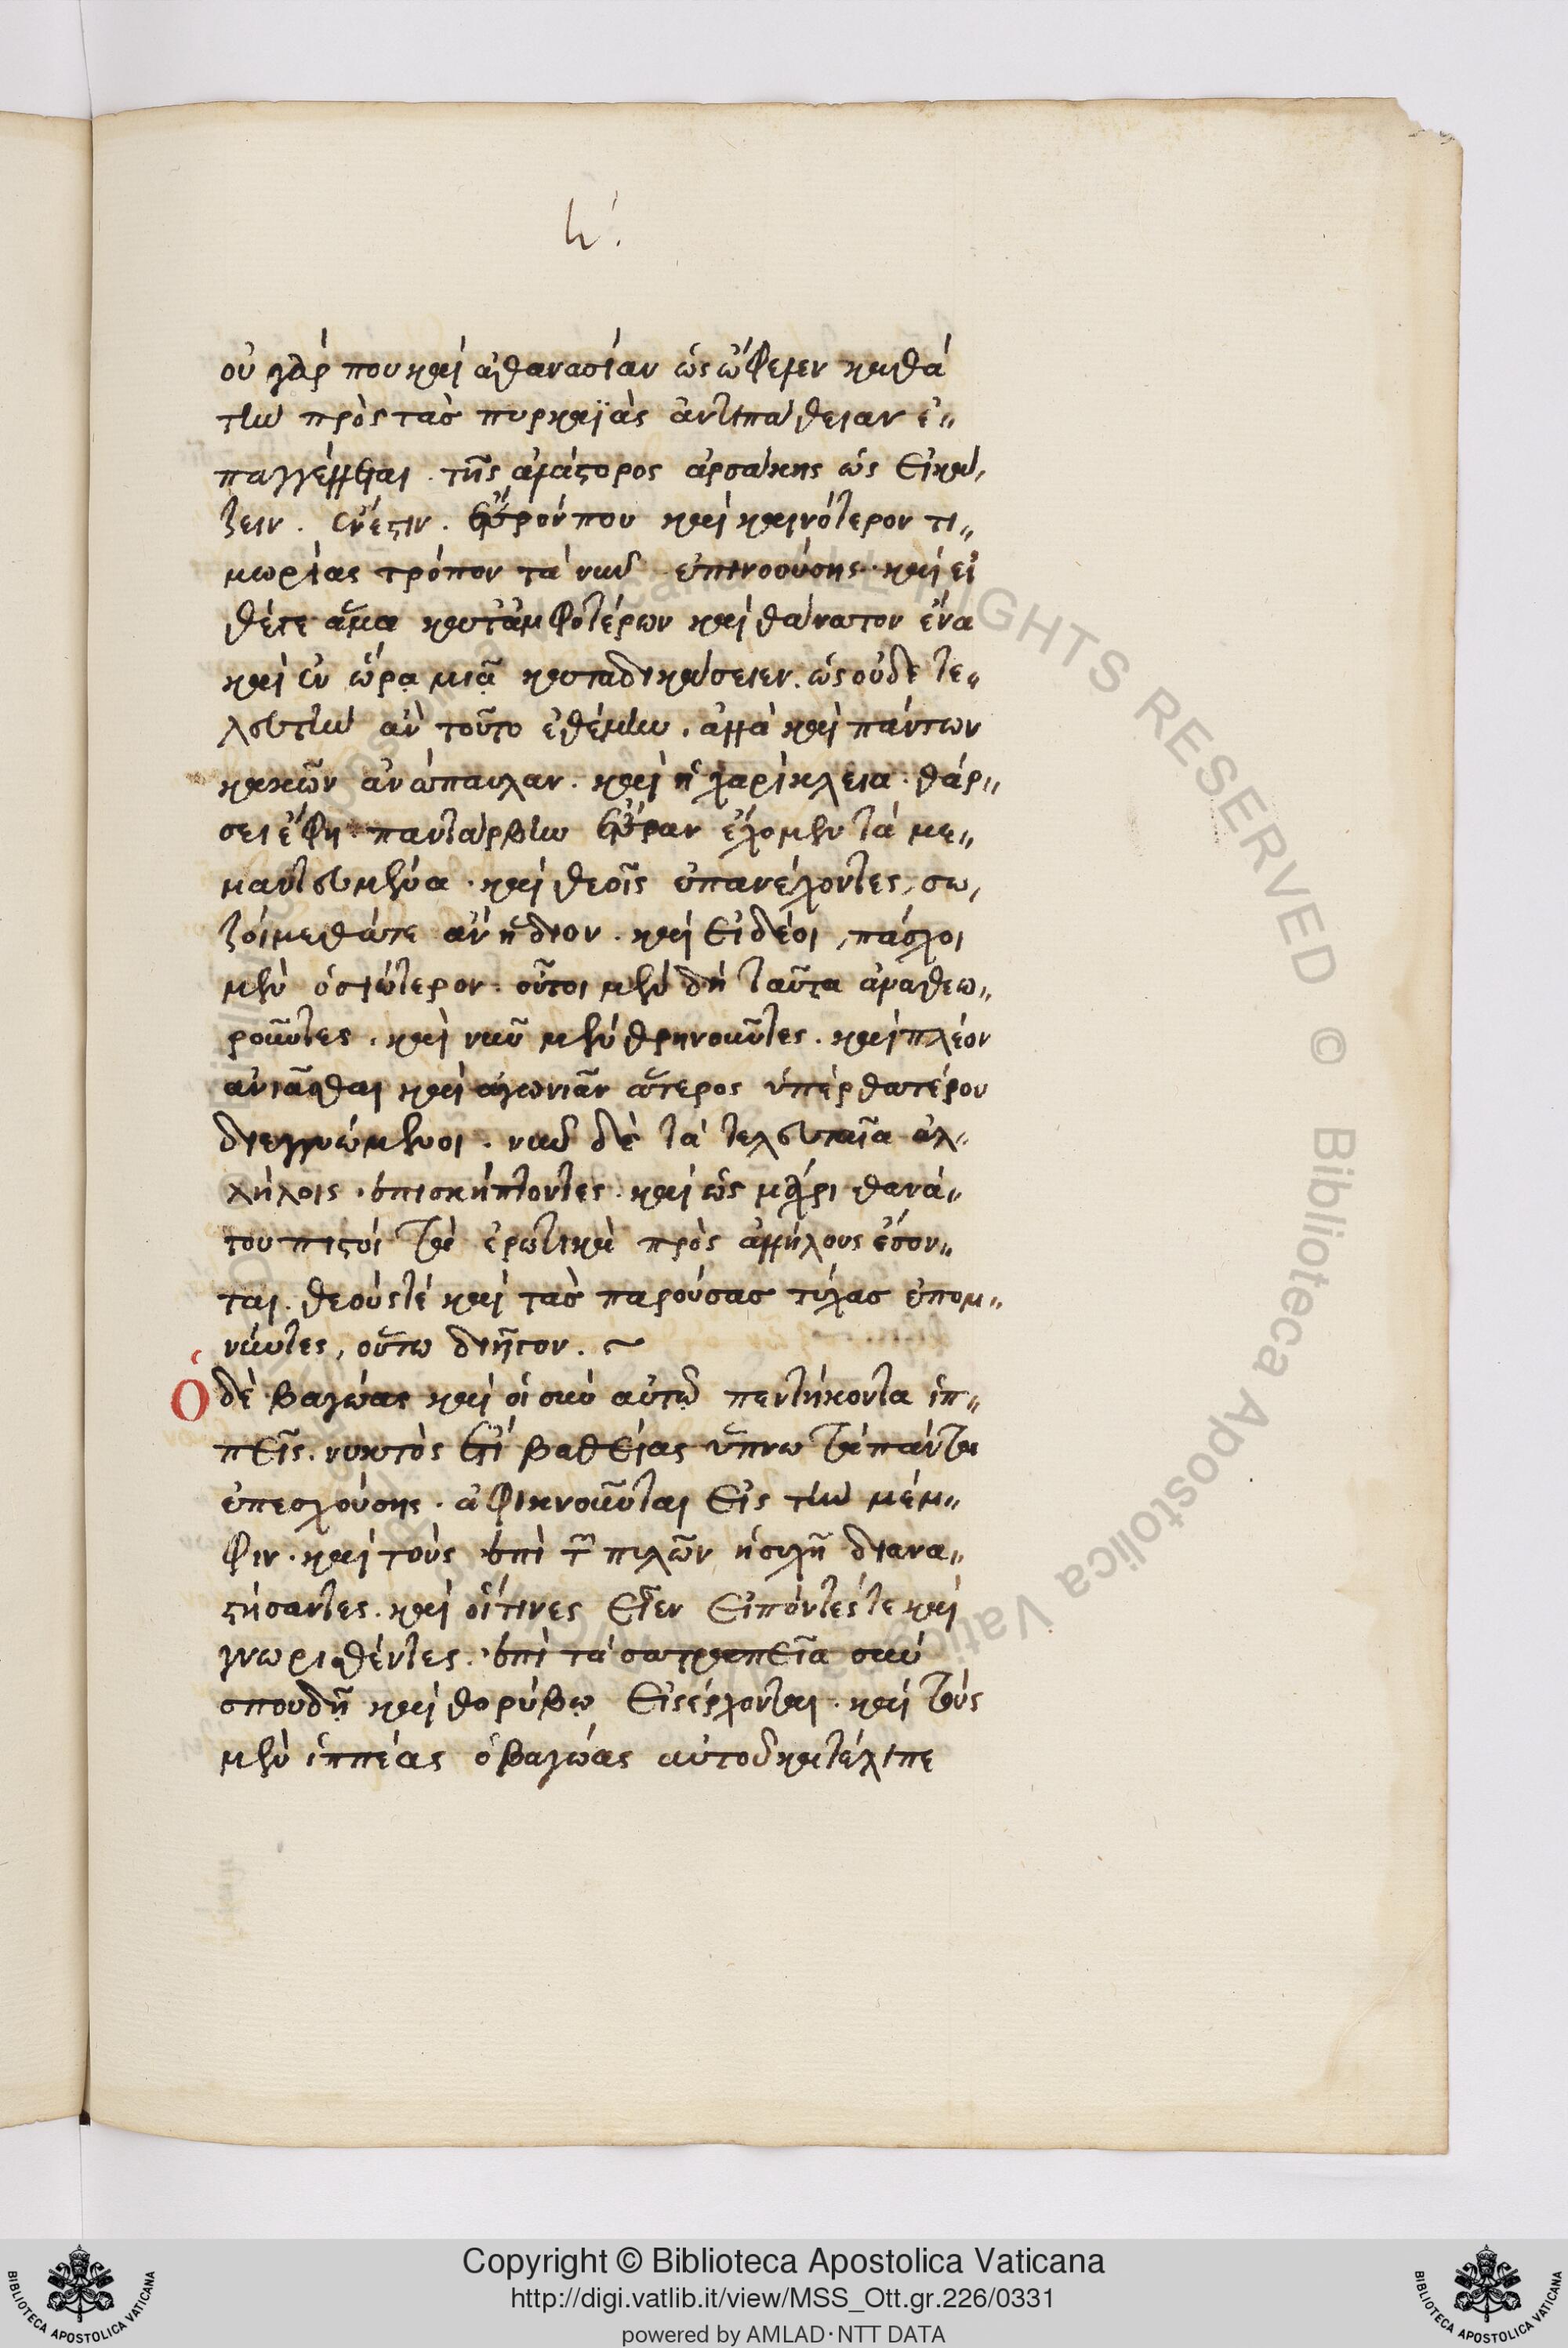 η΄.
οὐ γάρ που καὶ ἀθανασίαν ὡς ὤφελεν καθὰ
τὴν πρὸς τὰς πυρκαϊὰς ἀντιπάθειαν ἐ„
παγγέλλεται. τῆς ἀλάστορος ἀρσάκης ὡς εἰκά,
ζειν. ἔνεστιν. ἕτερόν που καὶ καινότερον τι„
μωρίας τρόπον τὰ νῦν ἐπινοούσης. καὶ εἰ
θέτε ἅμα κατ' ἀμφοτέρων καὶ θάνατον ἕνα
καὶ ἐν ὥρᾳ μιᾷ καταδικάσειεν. ὡς οὐδὲ τε„
λευτὴν ἂν τοῦτο ἐθέμην. ἀλλὰ καὶ πάντων
κακῶν ἀνάπαυλαν. καὶ ἡ χαρίκλεια. θάρ„
σει ἔφη. παντάρβην ἑτέραν ἔχομεν τὰ με„
μαντευμένα. καὶ θεοῖς ἐπανέχοντες, σω,
ζοίμεθά τε ἂν ἥδιον. καὶ εἰ δέοι, πάσχοι
μὲν ὁσιώτερον. οὗτοι μὲν δὴ ταῦτα ἀναθεω„
ροῦντες. καὶ νῦν μὲν θρηνοῦντες. καὶ πλέον
ἀνιᾶσθαι καὶ ἀγωνιᾶν ἅτερος ὑπὲρ θατέρου
διεγγυώμενοι. νῦν δὲ τὰ τελευταῖα ἀλ„
λήλοις. ἐπισκήπτοντες. καὶ ὡς μέχρι θανά„
του πιστοὶ τὰ ἐρωτικὰ πρὸς ἀλλήλους ἔσον„
ται. θεούς τε καὶ τὰς παρούσας τύχας ἐπομ„
νύντες, οὕτω διῆγον. ~
Ὁ δὲ βαγώας καὶ οἱ σὺν αὐτῷ πεντήκοντα ἱπ„
πεῖς. νυκτὸς ἔτι βαθείας ὕπνω τὰ πάντα
ἐπεσχούσης. ἀφικνοῦνται εἰς τὴν μέμ„
φιν. καὶ τοὺς ἐπὶ τῶν πυλῶν ἡσυχῆ διανα„
στήσαντες. καὶ οἵτινες εἶεν εἰπόντές τε καὶ
γνωρισθέντες. ἐπὶ τὰ σατραπεῖα σὺν
σπουδῇ καὶ θορύβῳ εἰσέρχονται. καὶ τοὺς
μὲν ἱππέας ὁ βαγώας αὐτοῦ κατέλιπε
Copyright © Biblioteca Apostolica Vaticana
http://digi.vatlib.it/view/MSS_Ott.gr.226/0331
powered by AMLAD·NTT DATA